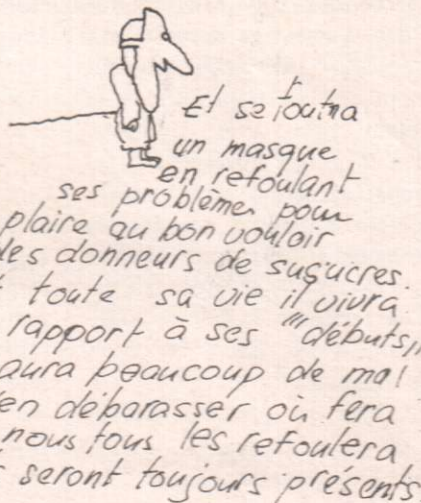 Et se foutra
un masque
en refoulant
ses problèmes pour
plaire au bon vouloir
des donneurs de susucres.
toute sa vie il vivra
rapport à ses "débuts"
aura beaucoup de mal
en débarasser où fera
nous tous les refoulera
seront toujours présents